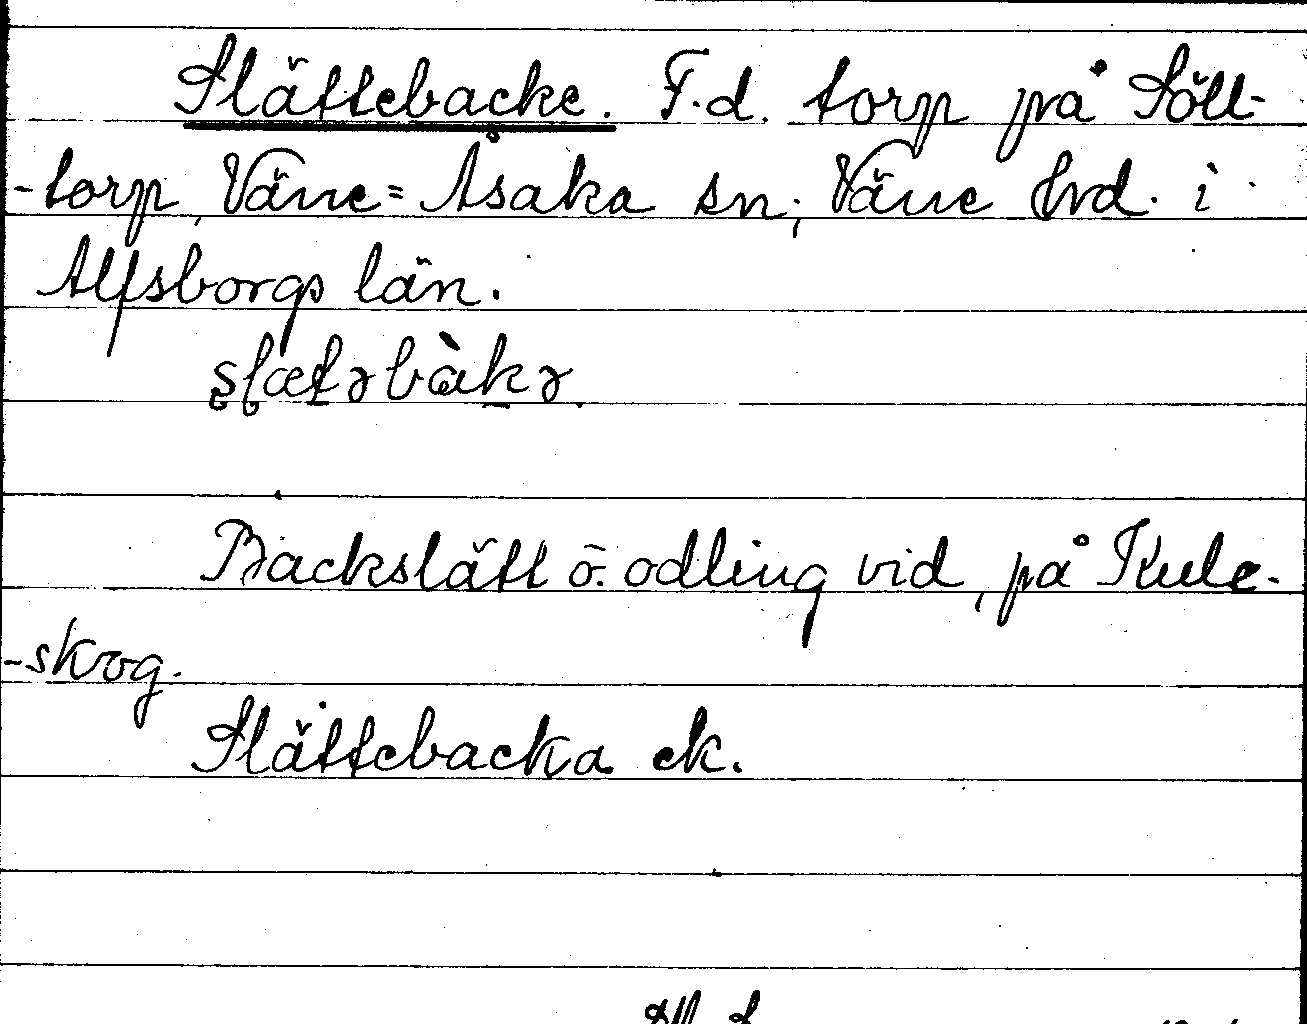 Slättebacke. F.d. torp på Sött-
-torp, Väne=Åsaka sn, Väne hrd. i
Älfsborgs län.
Backslätt o. odling vid, på Kule-
-skog.
Slättebacka ek.